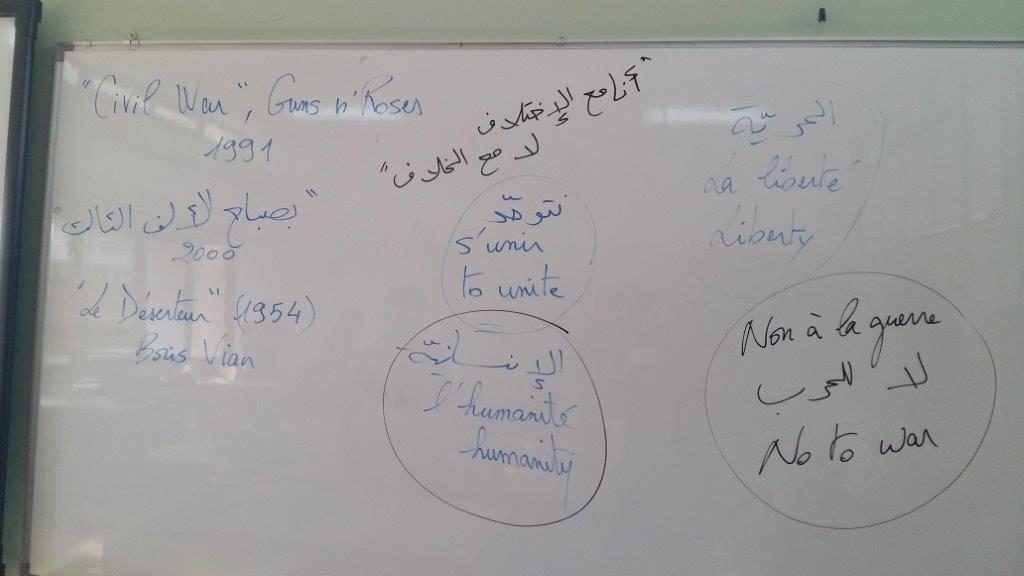 "Civil War", Guns n'Roses
1991
"بصباح الألف الثالث"
2000
"Le Déserteur" (1954)
Boris Vian
"أنا مع الإختلاف
لا مع الخلاف"
نتوحّد
s'unir
to unite
الإنسانيّة
l'humanité
humanity
الحريّة
La liberté
Liberty
Non à la guerre
لا للحرب
No to war